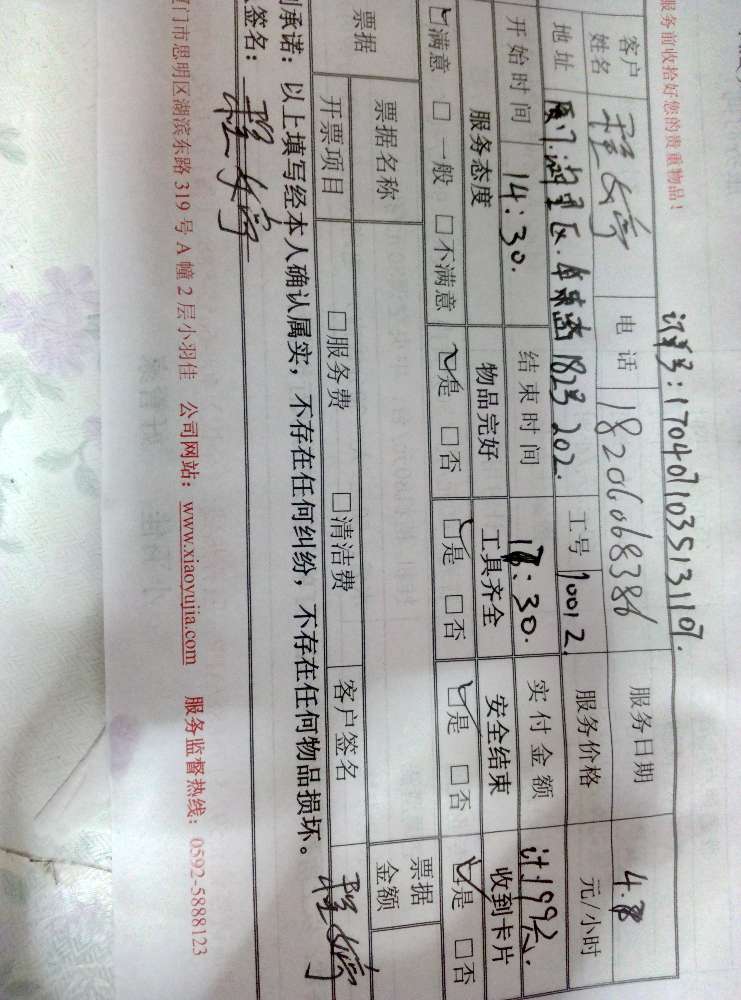 服务前收拾好您的贵重物品！
订单号：1704071035131107.
客户姓名 电话 18206068386 服务日期 4.8
地址 厦门.湖里区. 182号202. 工号 10012 服务价格 元/小时
开始时间 14:30. 结束时间 :30. 实付金额 计199元.
服务态度 物品完好 工具齐全 安全结束 收到卡片
☑满意 □一般 □不满意 ☑是 □否 ☑是 □否 ☑是 □否 ☑是 □否
票据 票据名称 票据金额
开票项目 □服务费 □清洁费 客户签名
承诺：以上填写经本人确认属实，不存在任何纠纷，不存在任何物品损坏。
签名：
厦门市思明区湖滨东路319号A幢2层小羽佳 公司网站：www.xiaoyujia.com 服务监督热线：0592-5888123